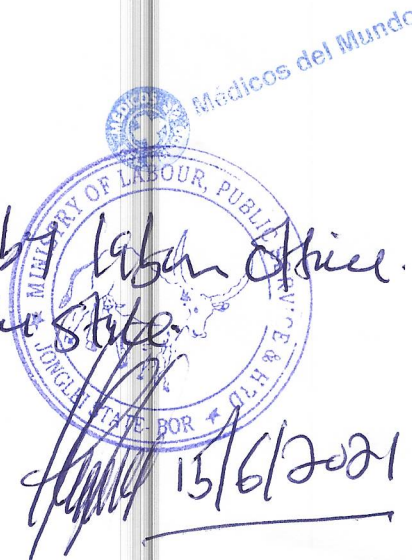 Médicos del Mundo
MEDICOS
MINISTRY OF LABOUR, PUBLIC SERVICE & HRD
JONGLEI STATE-BOR
by Labour Office.
state.
15/6/2021